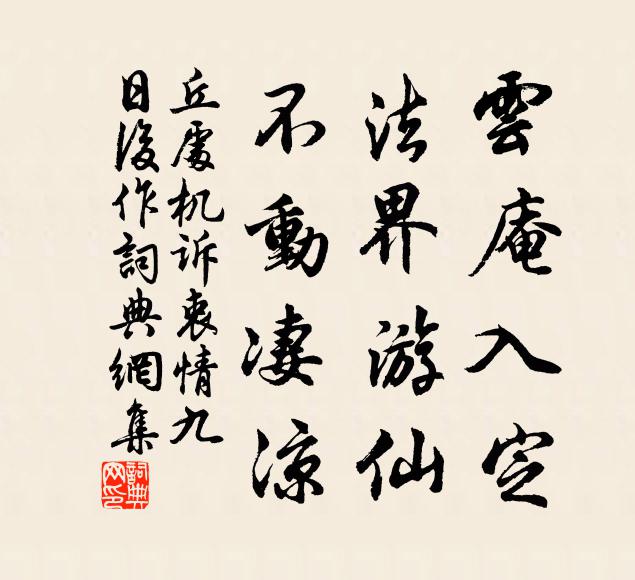 雲庵入定
法界游仙
不動凄涼
丘處机诉衷情九
日後作詞典網集
詞典网印